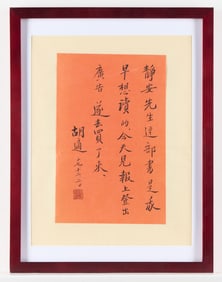 靜安先生這部書是我
早想讀的,今天見報上登出
廣告,遂去買了來、
胡適